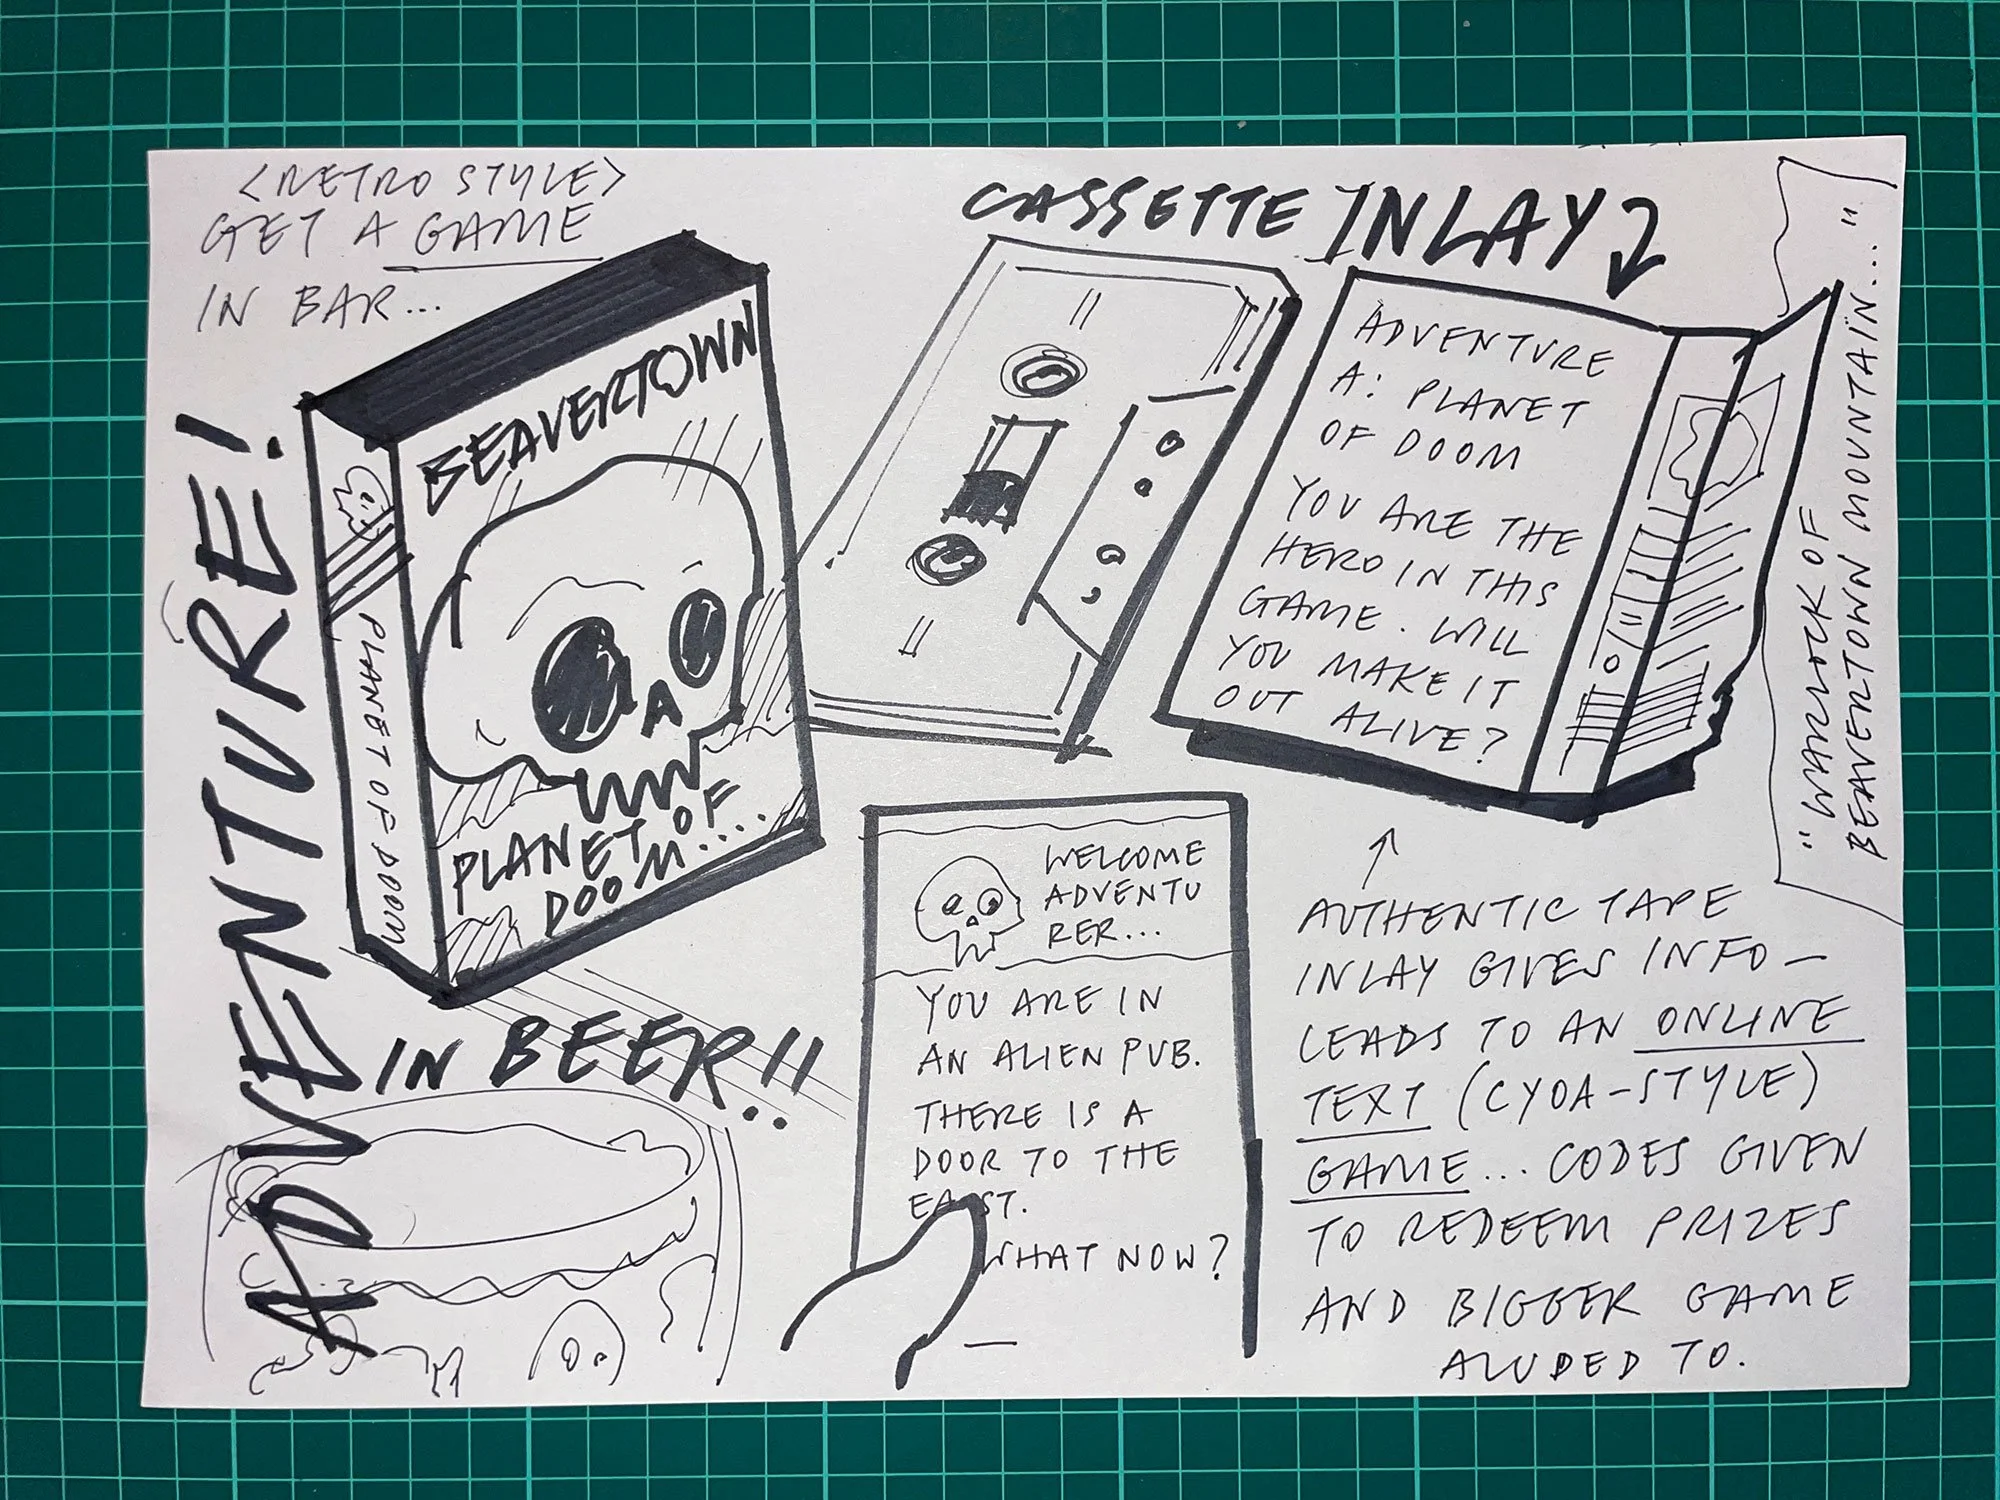 <RETRO STYLE>
GET A GAME
IN BAR...
ADVENTURE!
IN BEER!!
BEAVERTOWN
PLANET OF
DOOM...
PLANET OF DOOM
CASSETTE INLAY
ADVENTURE
A: PLANET
OF DOOM
YOU ARE THE
HERO IN THIS
GAME. WILL
YOU MAKE IT
OUT ALIVE?
"WARLOCK OF
BEAVERTOWN MOUNTAIN..."
WELCOME
ADVENTU
RER...
YOU ARE IN
AN ALIEN PUB.
THERE IS A
DOOR TO THE
EAST.
WHAT NOW?
AUTHENTIC TAPE
INLAY GIVES INFO –
LEADS TO AN ONLINE
TEXT (CYOA-STYLE)
GAME... CODES GIVEN
TO REDEEM PRIZES
AND BIGGER GAME
ALUDED TO.